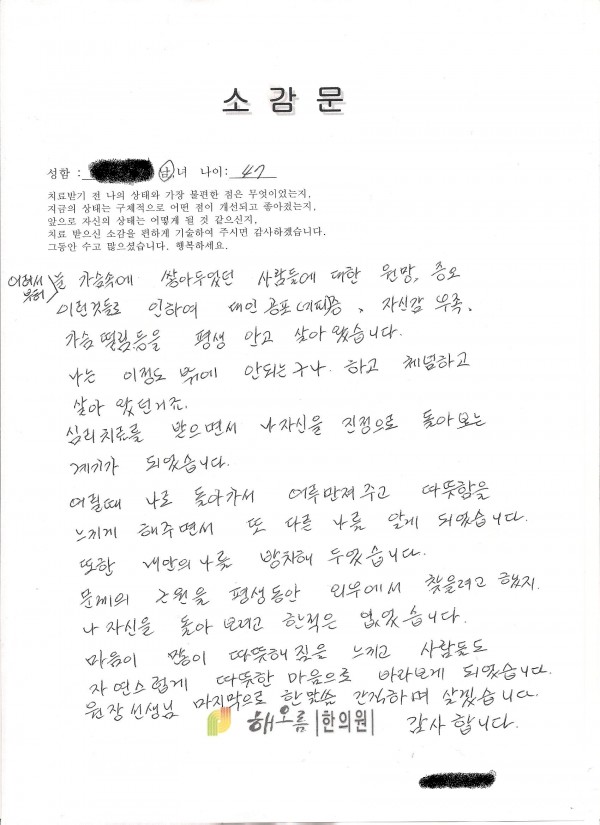 소 감 문
성함 : 남,녀 나이: 47
치료받기 전 나의 상태와 가장 불편한 점은 무엇이었는지,
지금의 상태는 구체적으로 어떤 점이 개선되고 좋아졌는지,
앞으로 자신의 상태는 어떻게 될 것 같으신지,
치료 받으신 소감을 편하게 기술하여 주시면 감사하겠습니다.
그동안 수고 많으셨습니다. 행복하세요.
어려서
부터
늘 가슴속에 쌓아두었던 사람들에 대한 원망, 증오
이런것들로 인하여 대인 공포(기피)증, 자신감 부족,
가슴 떨림등을 평생 안고 살아 왔습니다.
나는 이정도 밖에 안되는구나. 하고 체념하고
살아 왔던거죠.
심리치료를 받으면서 나자신을 진정으로 돌아보는
계기가 되었습니다.
어릴때 나로 돌아가서 어루만져 주고 따뜻함을
느끼게 해주면서 또 다른 나를 알게 되었습니다.
또한 내안의 나를 방치해 두었습니다.
문제의 근원을 평생동안 외부에서 찾을려고 했지.
나 자신을 돌아 보려고 한적은 없었습니다.
마음이 많이 따뜻해 짐을 느끼고 사람들도
자연스럽게 따뜻한 마음으로 바라보게 되었습니다.
원장 선생님 마지막으로 한말씀 간직하며 살겠습니다.
감사 합니다.
해오름 |한의원|